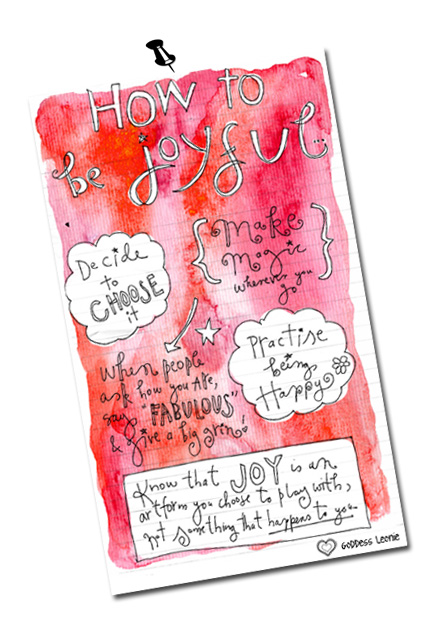 How to
be joyful...
Decide
to
CHOOSE
it
{Make
Magic
wherever you
go}
When people
ask how you are,
say "FABULOUS"
& give a big grin!
Practise
being
Happy
Know that JOY is an
artform you choose to play with,
not something that happens to you.
GODDESS LEONIE